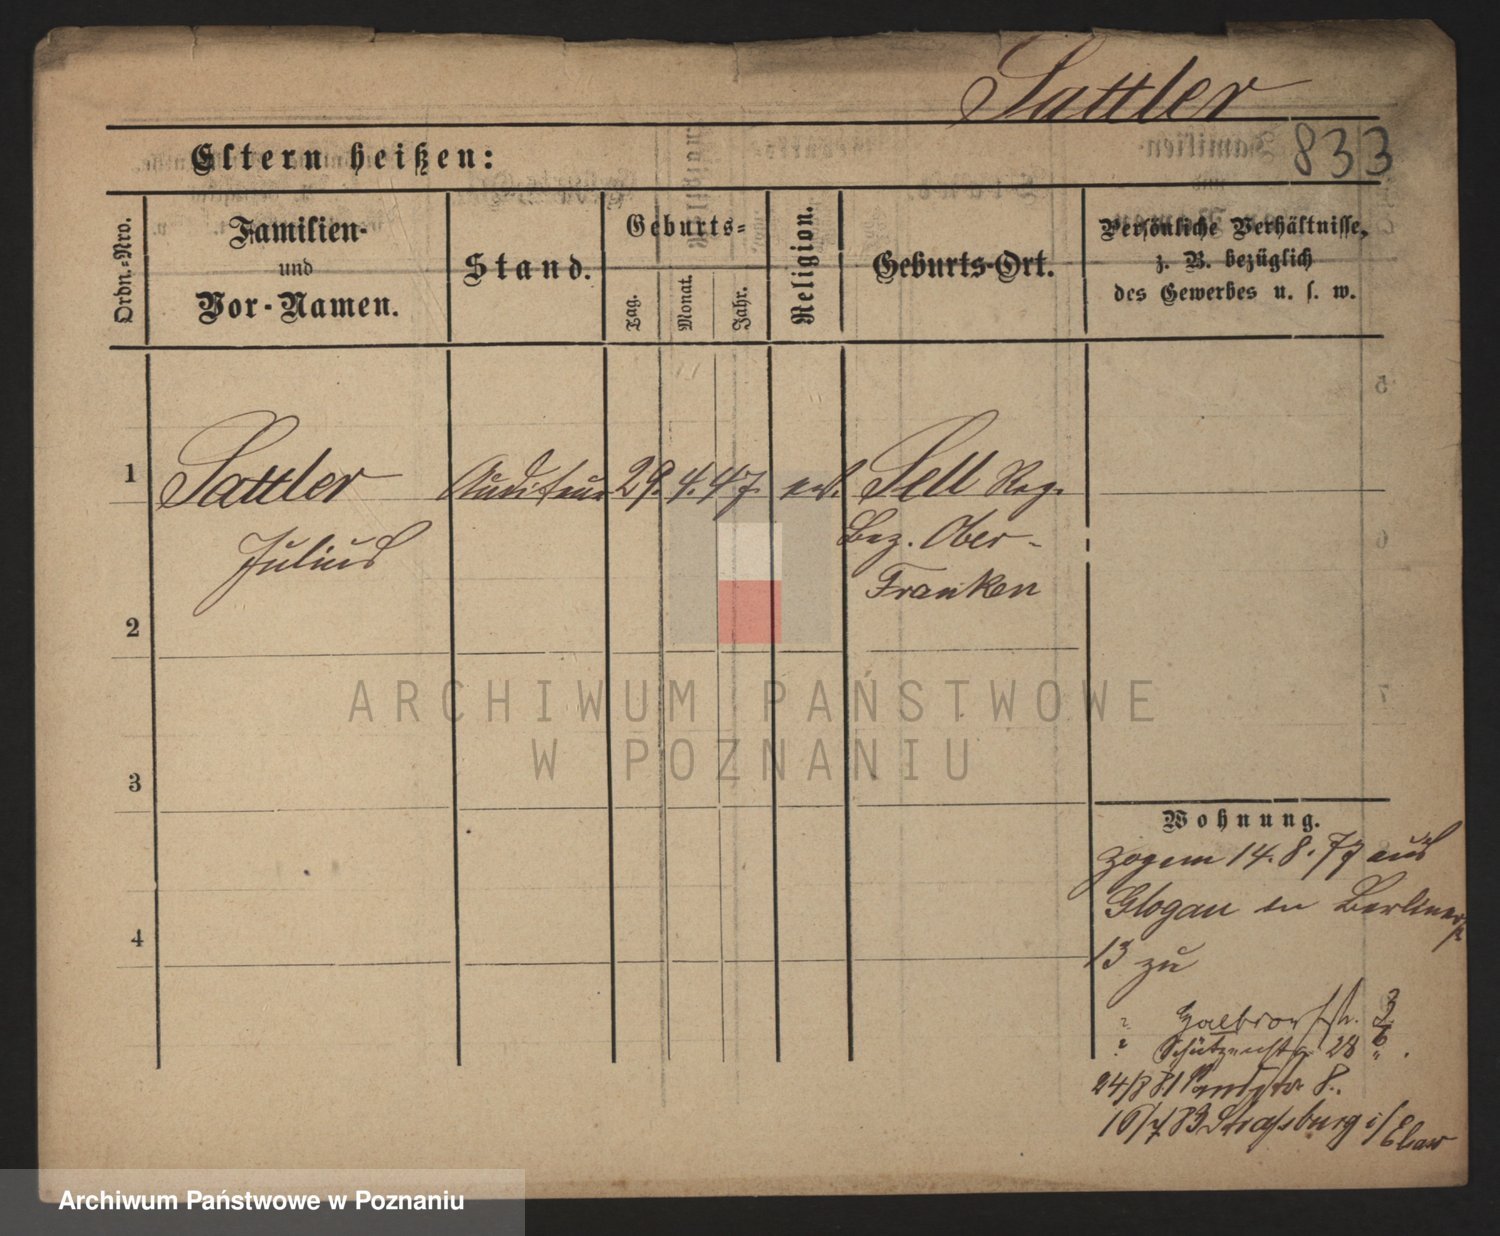 Sattler
833
Eltern heißen:
Ordn.-Nro.
Familien-
und
Vor-Namen.
Stand.
Geburts-
Tag.
Monat.
Jahr.
Religion.
Geburts-Ort.
Persönliche Verhältnisse,
z. B. bezüglich
des Gewerbes u. s. w.
1
Sattler
Julius
Auditeur
29. 4. 47.
ev.
Sell Reg.
Bez. Ober-
Franken
2
3
4
Wohnung.
zogem 14. 8. 77 aus
Glogau in Berlinerstr
13 zu
Schützenstr 28
24/8 81 8.
16/7 83 Strassburg i/Elsass
ARCHIWUM PAŃSTWOWE
W POZNANIU
Archiwum Państwowe w Poznaniu